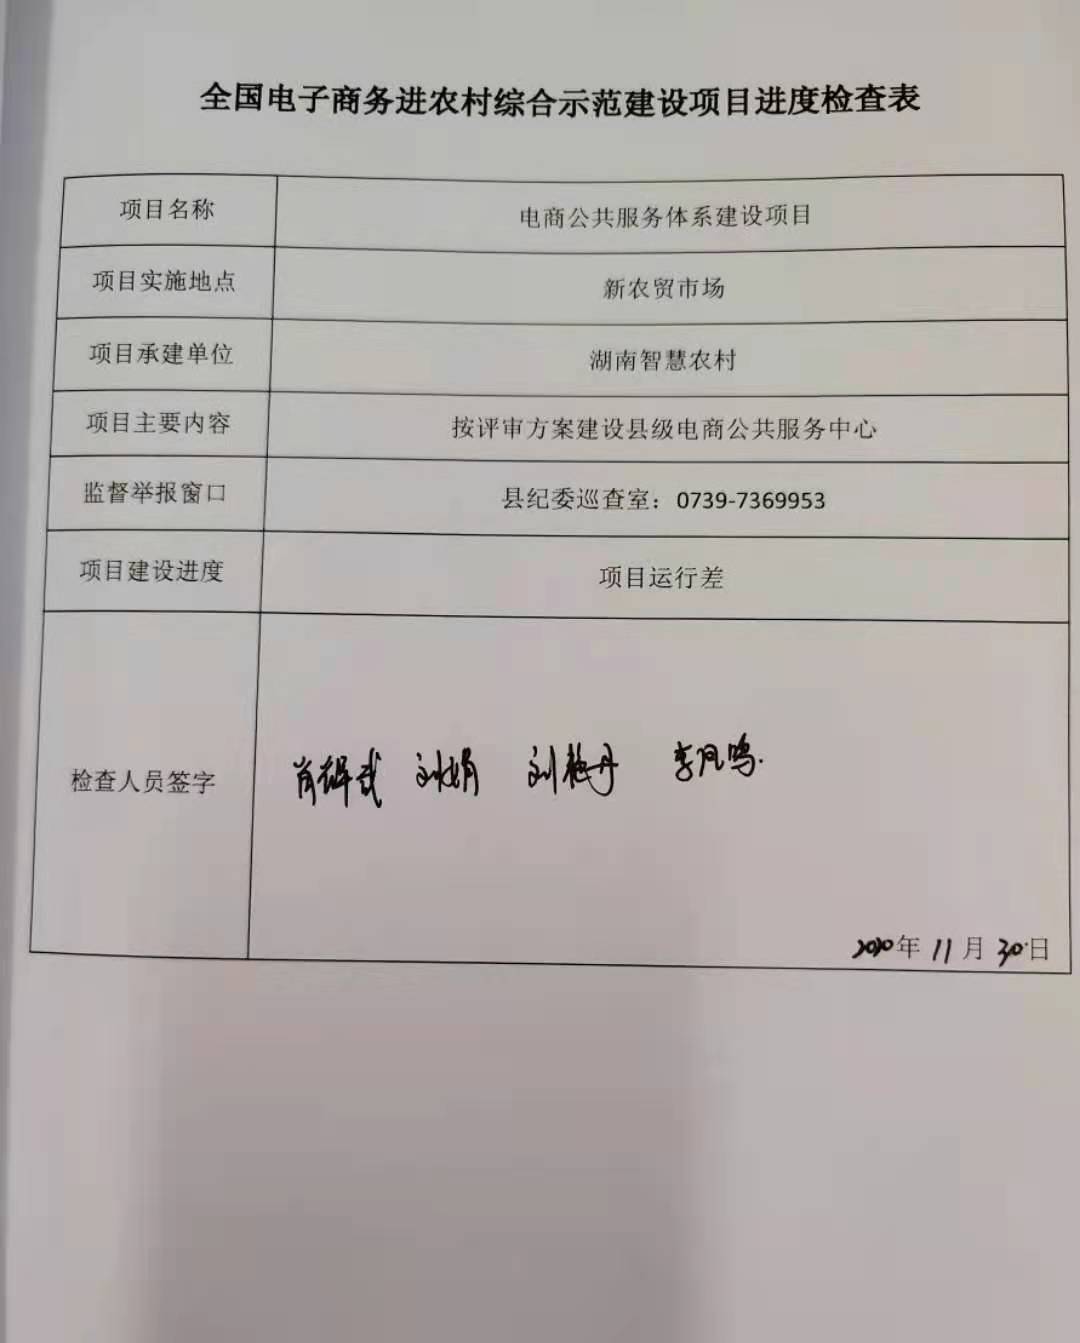 全国电子商务进农村综合示范建设项目进度检查表
项目名称 电商公共服务体系建设项目
项目实施地点 新农贸市场
项目承建单位 湖南智慧农村
项目主要内容 按评审方案建设县级电商公共服务中心
监督举报窗口 县纪委巡查室：0739-7369953
项目建设进度 项目运行差
检查人员签字 刘娟 刘艳丹
2020年11月30日